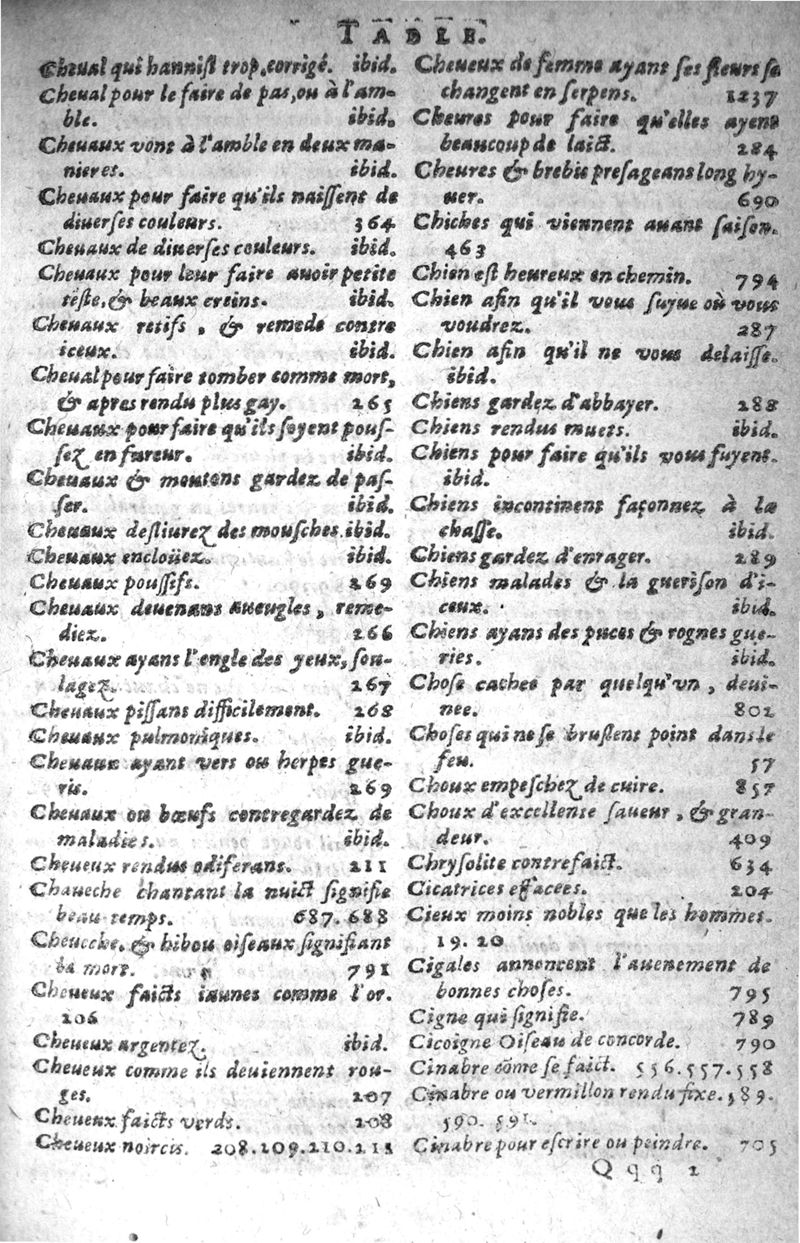 TABLE.
Cheual qui hannist trop, corrigé. ibid.
Cheual pour le faire de pas, ou à l'am-
ble. ibid.
Cheuaux vont à l'amble en deux ma-
nieres. ibid.
Cheuaux pour faire qu'ils naissent de
diuerses couleurs. 364
Cheuaux de diuerses couleurs. ibid.
Cheuaux pour leur faire auoir petite
teste, & beaux creins. ibid.
Cheuaux retifs, & remede contre
iceux. ibid.
Cheual pour faire tomber comme mort,
& apres rendu plus gay. 265
Cheuaux pour faire qu'ils soyent pous-
sez en fureur. ibid.
Cheuaux & moutons gardez de pas-
ser. ibid.
Cheuaux desliurez des mousches. ibid.
Cheuaux encloüez. ibid.
Cheuaux poussifs. 269
Cheuaux deuenans aueugles, reme-
diez. 266
Cheuaux ayans l'engle des yeux, sou-
lagez. 267
Cheuaux pissans difficilement. 268
Cheuaux pulmoniques. ibid.
Cheuaux ayant vers ou herpes gue-
ris. 269
Cheuaux ou bœufs contregardez de
maladies. ibid.
Cheueux rendus odiferans. 211
Chaueche chantant la nuict signifie
beau temps. 687. 688
Cheucche, & hibou oiseaux signifiant
la mort. 791
Cheueux faicts iaunes comme l'or.
206
Cheueux argentez. ibid.
Cheueux comme ils deuiennent rou-
ges. 207
Cheueux faicts verds. 208
Cheueux noircis. 208.209.210.211
Cheueux de femme ayant ses fleurs se
changent en serpens. 1237
Cheures pour faire qu'elles ayent
beaucoup de laict. 284
Cheures & brebis presageans long hy-
uer. 690
Chiches qui viennent auant saison.
463
Chien est heureux en chemin. 794
Chien afin qu'il vous suyue où vous
voudrez. 287
Chien afin qu'il ne vous delaisse.
ibid.
Chiens gardez d'abbayer. 288
Chiens rendus muets. ibid.
Chiens pour faire qu'ils vous fuyent.
ibid.
Chiens incontinent façonnez à la
chasse. ibid.
Chiens gardez d'enrager. 289
Chiens malades & la guerison d'i-
ceux. ibid.
Chiens ayans des puces & rognes gue-
ries. ibid.
Chose cachee par quelqu'vn, deui-
nee. 802
Choses qui ne se bruslent point dans le
feu. 57
Choux empeschez de cuire. 857
Choux d'excellente saueur, & gran-
deur. 409
Chrysolite contrefaict. 634
Cicatrices effacees. 204
Cieux moins nobles que les hommes.
19. 20
Cigales annoncent l'auenement de
bonnes choses. 795
Cigne qui signifie. 789
Cicoigne Oiseau de concorde. 790
Cinabre cõme se faict. 556.557.558
Cinabre ou vermillon rendu fixe. 589.
590. 591.
Cinabre pour escrire ou peindre. 705
Qqq 2